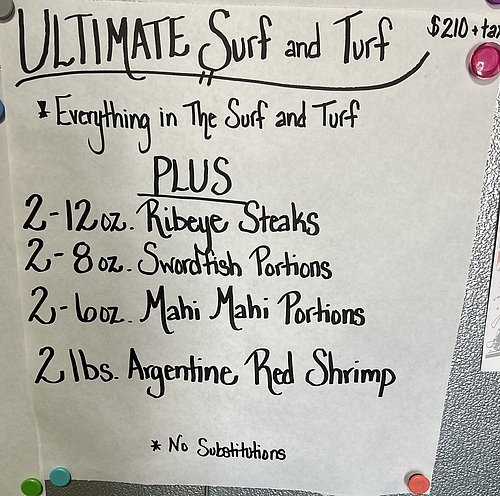 ULTIMATE Surf and Turf $210 + tax
* Everything in The Surf and Turf
PLUS
2-12oz. Ribeye Steaks
2-8oz. Swordfish Portions
2-6oz. Mahi Mahi Portions
2 lbs. Argentine Red Shrimp
* No Substitutions